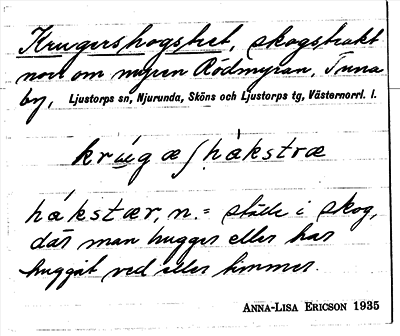 Krugershogstret, skogstrakt
norr om myren Rödmyran, Tuna
by, Ljustorps sn, Njurunda, Sköns och Ljustorps tg, Västernorrl. l.
krúgæʃhakstræ
hákstær, n. = ställe i skog,
där man hugger eller har
huggit ved eller timmer.
ANNA-LISA ERICSON 1935